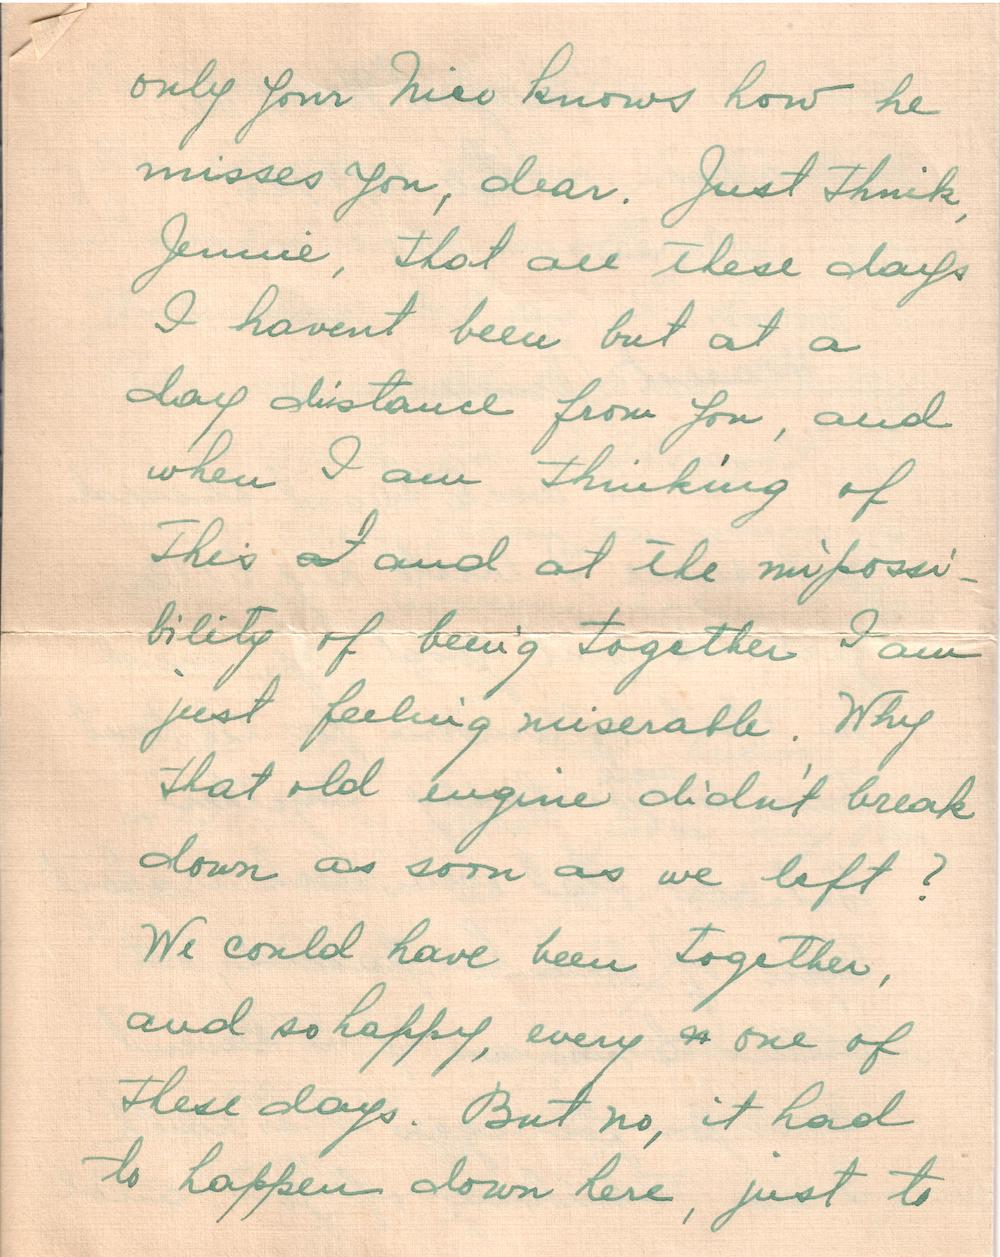 only your Nico knows how he
misses you, dear. Just think,
Jennie, that all these days
I havent been but at a
day distance from you, and
when I am thinking of
this I and at the impossi-
bility of being together I am
just feeling miserable. Why
that old engine didn't break
down as soon as we left?
We could have been together,
and so happy, every one of
these days. But no, it had
to happen down here, just to